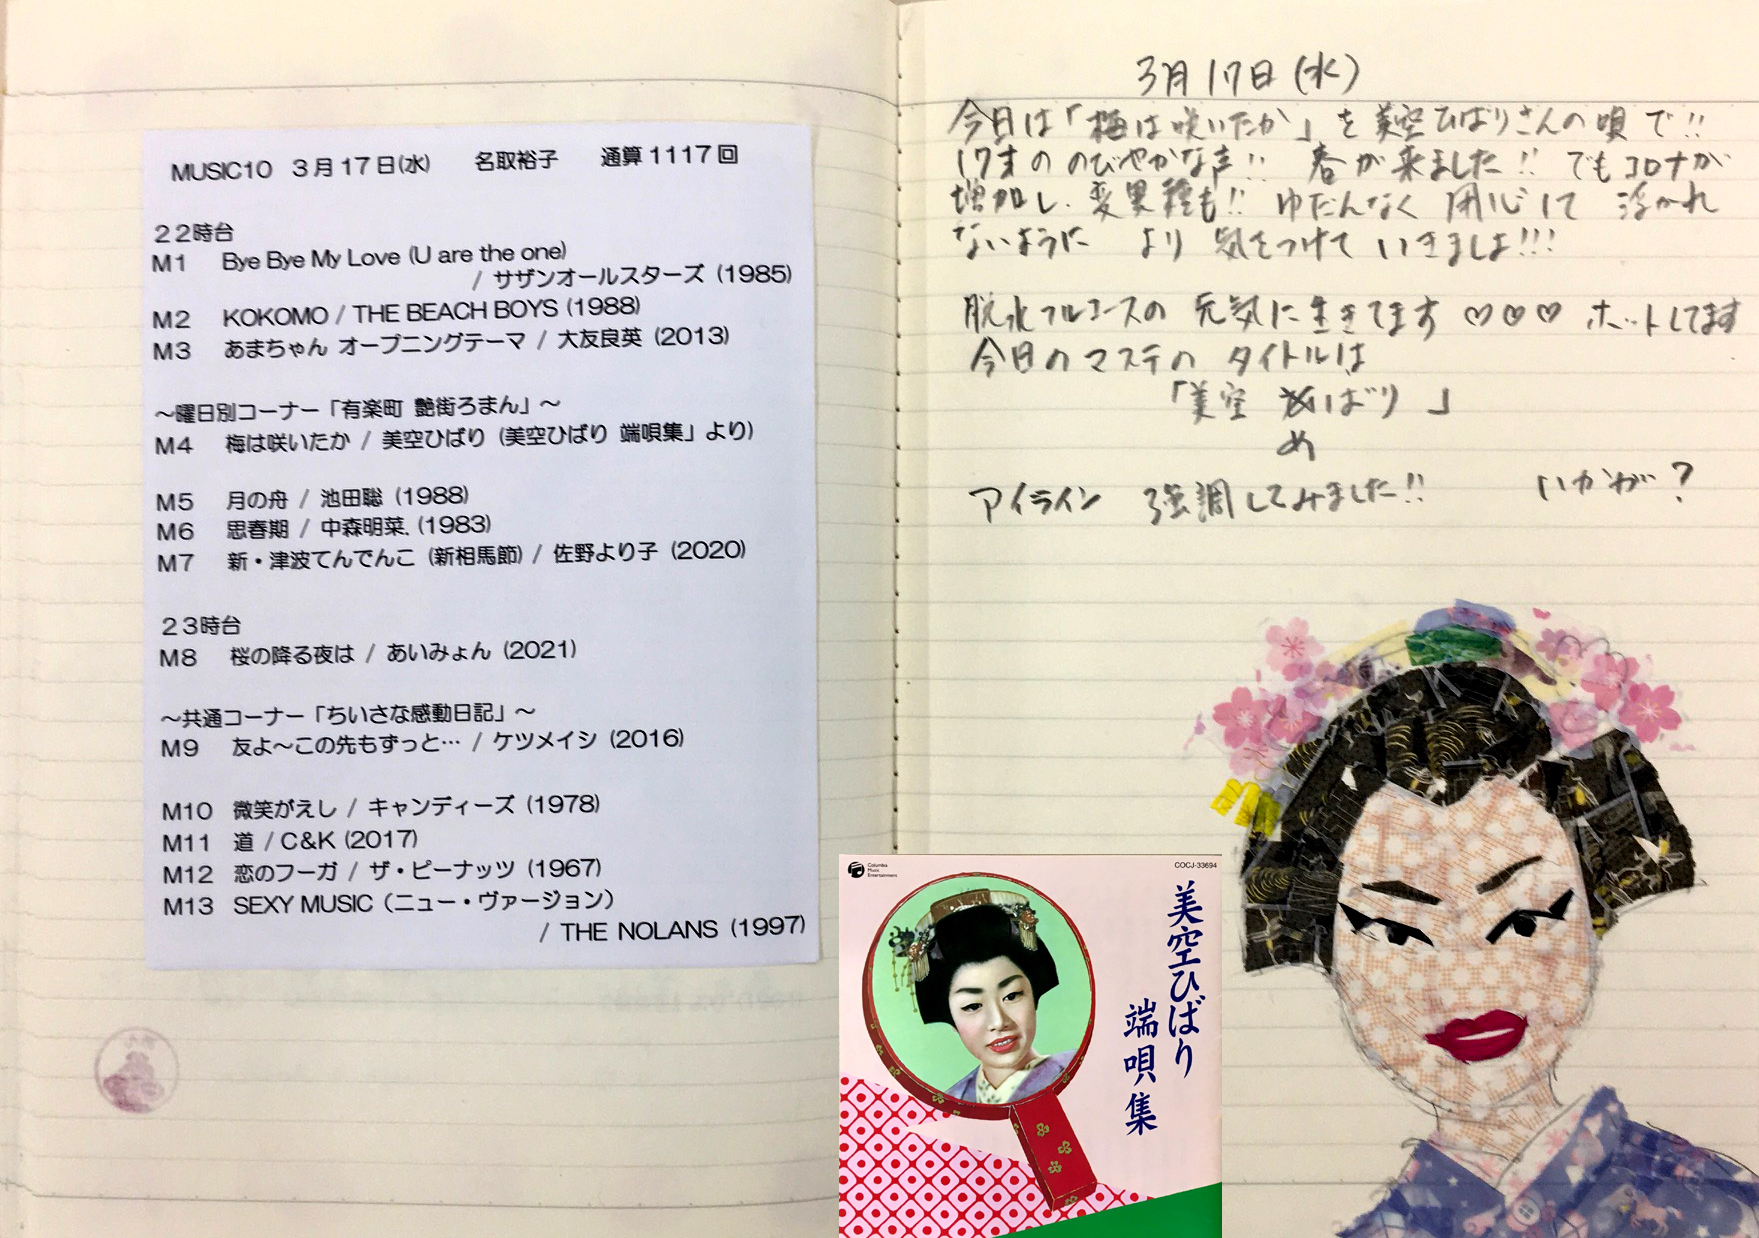 MUSIC10 3月17日(水) 名取裕子 通算1117回
22時台
M1 Bye Bye My Love (U are the one)
/ サザンオールスターズ (1985)
M2 KOKOMO / THE BEACH BOYS (1988)
M3 あまちゃん オープニングテーマ / 大友良英 (2013)
～曜日別コーナー「有楽町 艶街ろまん」～
M4 梅は咲いたか / 美空ひばり (美空ひばり 端唄集」より)
M5 月の舟 / 池田聡 (1988)
M6 思春期 / 中森明菜. (1983)
M7 新・津波てんでんこ (新相馬節) / 佐野より子 (2020)
23時台
M8 桜の降る夜は / あいみょん (2021)
～共通コーナー「ちいさな感動日記」～
M9 友よ～この先もずっと… / ケツメイシ (2016)
M10 微笑がえし / キャンディーズ (1978)
M11 道 / C&K (2017)
M12 恋のフーガ / ザ・ピーナッツ (1967)
M13 SEXY MUSIC（ニュー・ヴァージョン）
/ THE NOLANS (1997)
3月17日(水)
今日は「梅は咲いたか」を美空ひばりさんの唄で!!
17才ののびやかな声!! 春が来ました!! でもコロナが
増加し、変異種も!! ゆだんなく 用心して 浮かれ
ないように より 気をつけて いきましょ!!!
脱水フルコースの 元気に生きてます ♡♡♡ ホットしてます
今日のマステの タイトルは
「美空 いばり」
め
アイライン 強調してみました!! いかが?
Columbia
Music
Entertainment
COCJ-33694
美空ひばり
端唄集